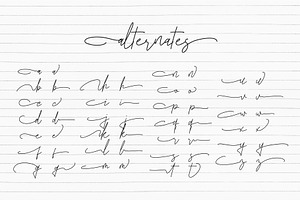 alternates
a a
b b
c c
d d
e e
f f
g g
h h
i i
k k
l l
m m
n n
o o
p p
q q
r r
s s
t t
u u
v v
w w
x x
y y
z z